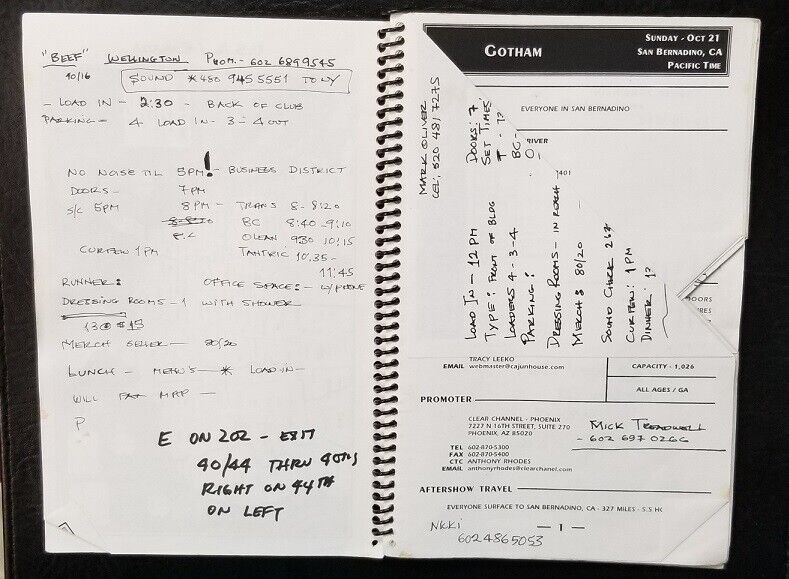 "BEEF" WELLINGTON PROM.- 602 6899545
10/16 SOUND *480 945 5551 TONY
- LOAD IN - 2:30 - BACK OF CLUB
PARKING - 4 LOAD IN - 3 - 4 OUT
NO NOISE TIL 5PM! - BUSINESS DISTRICT
DOORS - 7PM
S/C 5PM 8PM - TRANS 8 - 8:20
BC 8:40 - 9:10
OLEAN 930 10:15
CURFEW 1PM TANTRIC 10:35 -
11:45
RUNNER: OFFICE SPACE: - W/PHONE
DRESSING ROOMS - 1 WITH SHOWER
13 @ $15
MERCH SELLER - 80/20
LUNCH - MENU'S - * LOAD IN -
WILL FAX MAP -
P
E ON 202 - EXIT
40/44 THRU 40TH
RIGHT ON 44TH
ON LEFT
GOTHAM
SUNDAY - OCT 21
SAN BERNADINO, CA
PACIFIC TIME
EVERYONE IN SAN BERNADINO
RIVER
7401
MARK OLIVER
CEL: 520 481 7275
DOORS: 7
SET TIMES:
T - 1?
BC -
O -
LOAD IN - 12 PM
TYPE: FRONT OF BLDG
LOADERS 4 - 3 - 4
PARKING:
DRESSING ROOMS - IN REACH
MERCH: 80/20 -
SOUND CHECK 267
CURFEW: 1 PM
DINNER: 1?
OORS
RES
TRACY LEEKO
EMAIL webmaster@cajunhouse.com
CAPACITY - 1,026
ALL AGES / GA
PROMOTER
CLEAR CHANNEL - PHOENIX
7227 N 16TH STREET, SUITE 270
PHOENIX, AZ 85020
MICK TREADWELL
- 602 697 0266
TEL 602-870-5300
FAX 602-870-5400
CTC ANTHONY RHODES
EMAIL anthonyrhodes@clearchanel.com
AFTERSHOW TRAVEL
EVERYONE SURFACE TO SAN BERNADINO, CA - 327 MILES - 5.5 HO
NKKI
6024865053
- 1 -